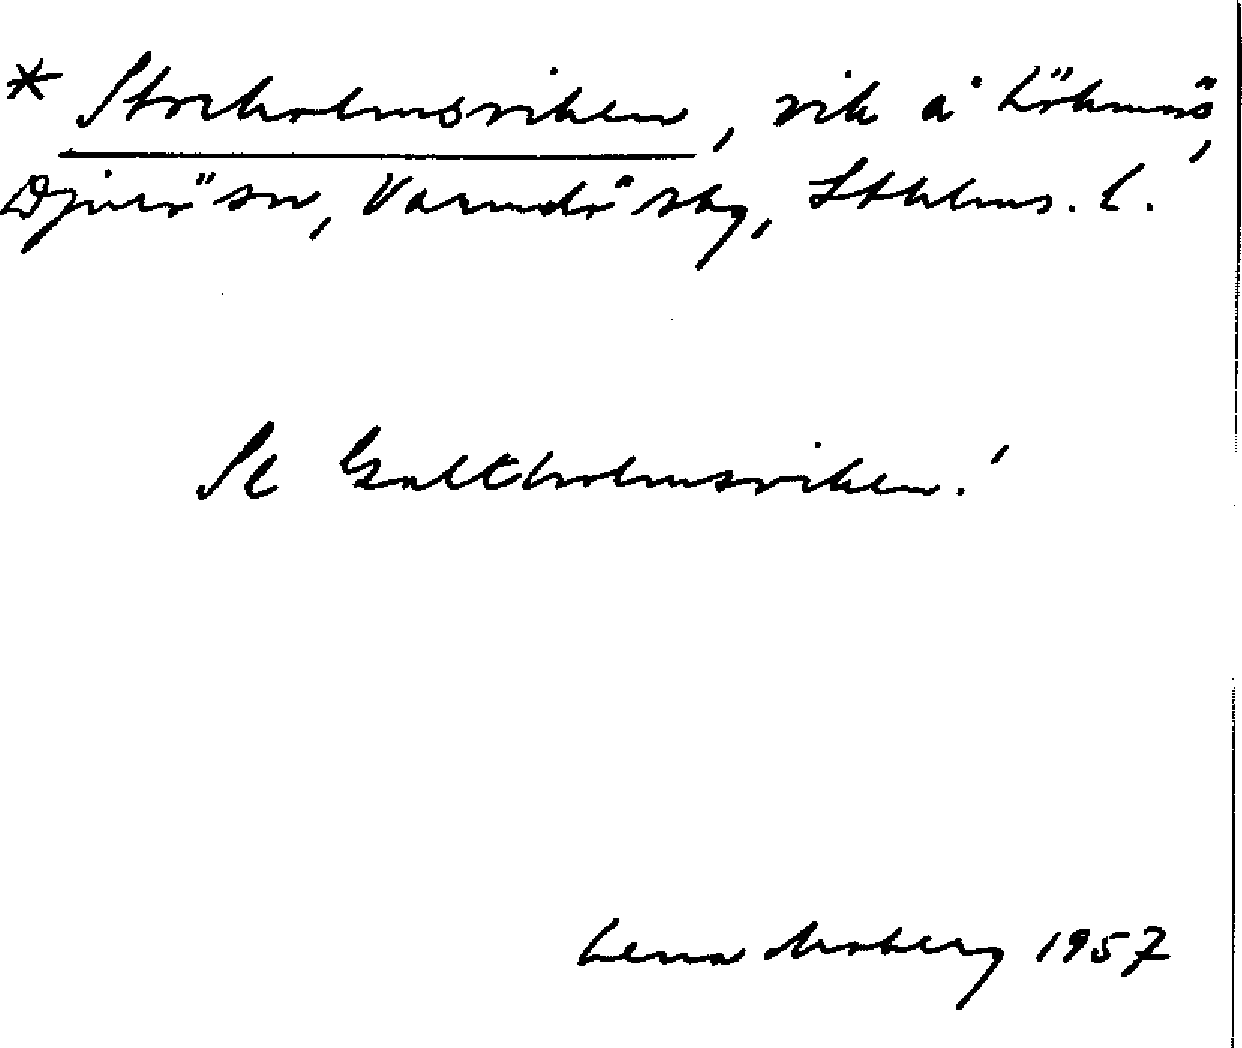 * Stockholmsviken, vik å Löknäs,
Djurö sn, Värmdö skg, Sthlms. l.
Se Galtholmsviken!
Lena Moberg 1957